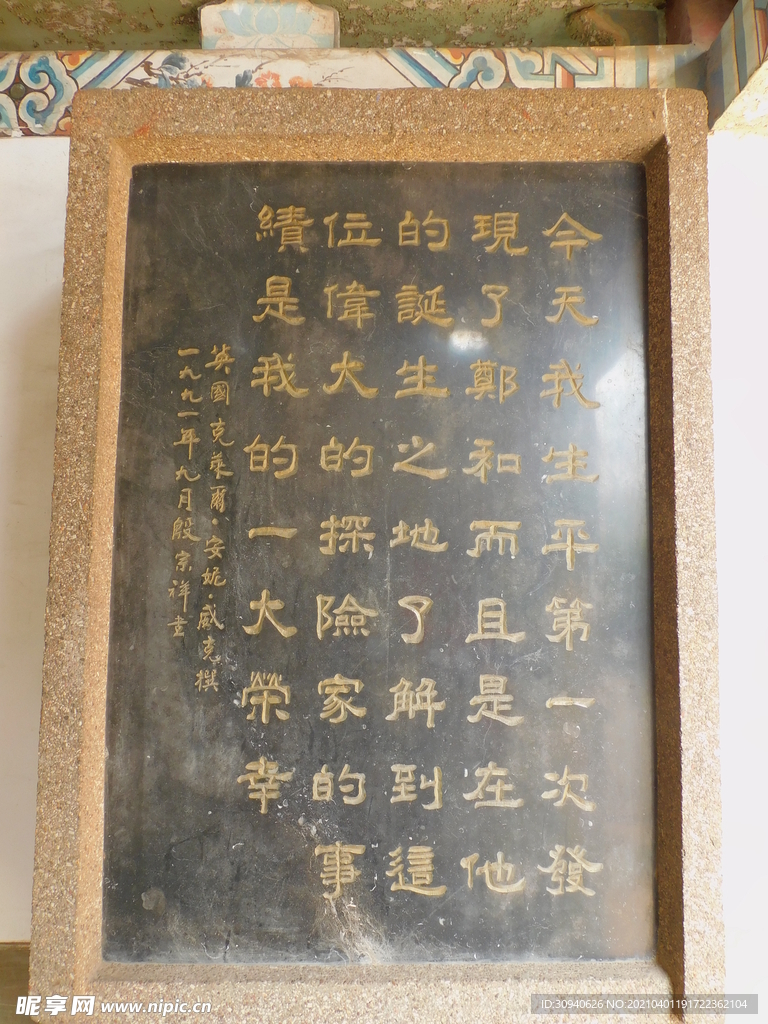 今天我生平第一次發
現了鄭和而且是在他
的誕生之地了解到這
位偉大的探險家的事
績是我的一大榮幸
英國克萊爾·安妮·威克撰
一九九一年九月殷宗祥書
昵享网 www.nipic.cn
ID:30940626 NO:20210401191722362104